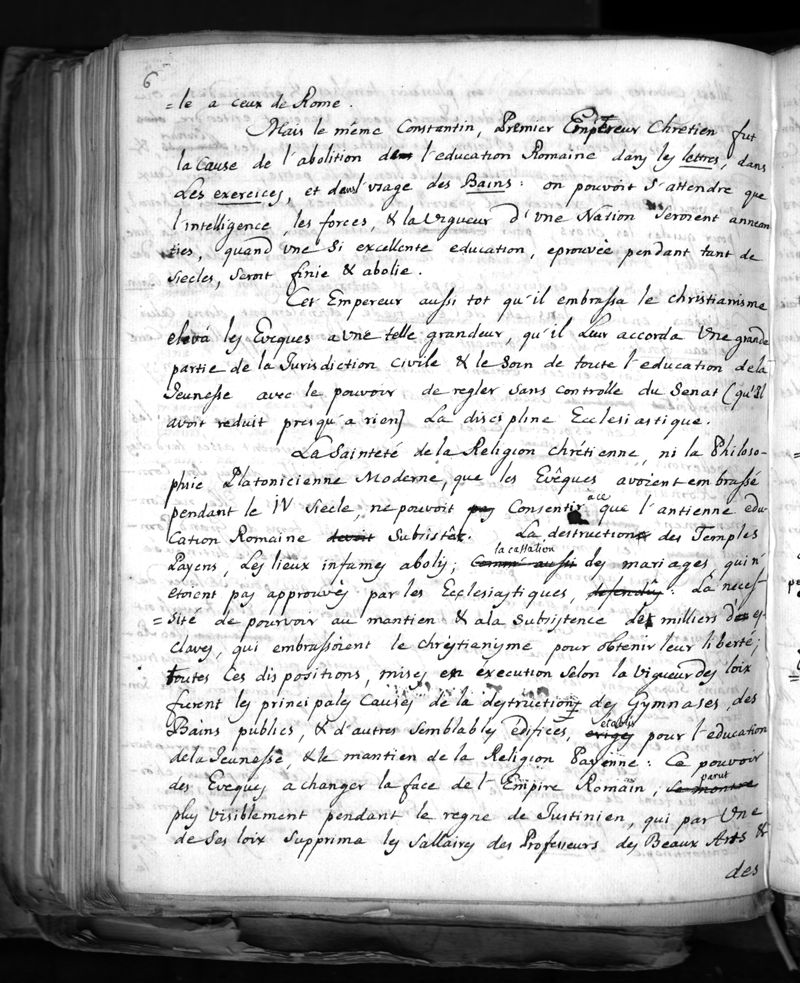 6
=le a ceux de Rome.
Mais le méme Constantin, Premier Empereur Chretien fut
la Cause de l'abolition de l'education Romaine dans les lettres, dans
Les exercices, et dans l'usage des Bains: on pouvoit s'attendre que
l'intelligence, les forces, & la Vigueur d'une Nation Seroient annean
ties, quand vne si excellente education, eprouvée pendant tant de
siecles, seroit finie & abolie.
Cet Empereur aussi tot qu'il embrassa le christianisme
eleva les Evêques a une telle grandeur, qu'il leur accorda Une grande
partie de la Jurisdiction Civile & le Soin de toute l'education de la
Jeunesse avec le pouvoir de regler sans controlle du Senat (qu'il
avoit reduit presqu'a rien) La discipline Ecclesiastique.
La Sainteté de la Religion chrétienne, ni la Philoso-
phie Platonicienne Moderne, que les Evêques avoient embrassé
pendant le IV Siecle, ne pouvoit pas Consentir a ce que l'antienne edu
cation Romaine devoit Subsister. La destruction des Temples
Payens, Les lieux infames abolis; Comme aussi la cassation des mariages, qui n'
etoient pas approuvés par les Ecclesiastiques, defendus: La neces-
=sité de pourvoir au mantien & a la Subsistence de milliers d'es
claves, qui embrassoient le chrestianisme pour obtenir leur liberté;
toutes Ces dispositions, mises en execution selon la vigueur des loix
furent les principales Causes de la destruction des Gymnases, des
Bains publics, & d'autres Semblables edifices, eriges etablis pour l'education
de la Jeunesse, & le mantien de la Religion Payenne: Ce pouvoir
des Eveques a changer la face de l'Empire Romain, se montre parut
plus visiblement pendant le regne de Justinien, qui par Une
de Ses loix Supprima les Sallaires des Professeurs des Beaux Arts &
des